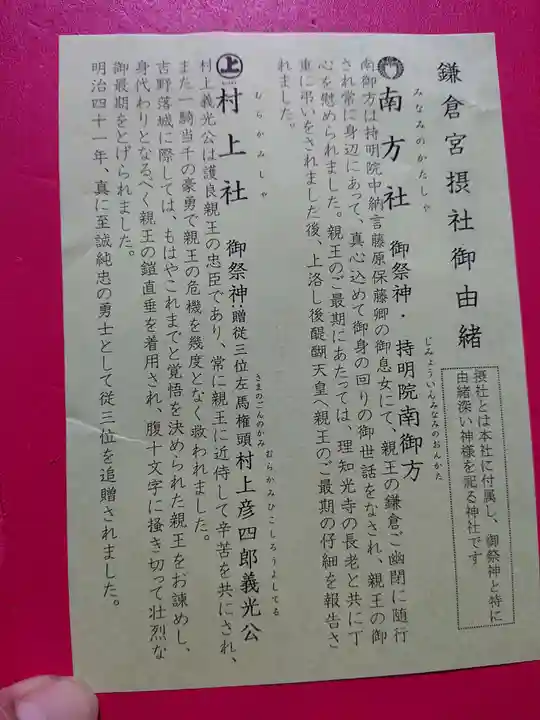 鎌倉宮摂社御由緒
摂社とは本社に付属し、御祭神と特に
由緒深い神様を祀る神社です
みなみのかたしゃ
じみょういんみなみのおんかた
南方社 御祭神・持明院南御方
南御方は持明院中納言藤原保藤卿の御息女にて、親王の鎌倉ご幽閉に随行
され常に身辺にあって、真心込めて御身の回りの御世話をなされ、親王の御
心を慰められました。親王のご最期にあたっては、理知光寺の長老と共に丁
重に弔いをされました後、上洛し後醍醐天皇へ親王のご最期の仔細を報告さ
れました。
むらかみしゃ
さまのごんのかみ むらかみひこしろうよしてる
上 村上社 御祭神:贈従三位左馬権頭村上彦四郎義光公
村上義光公は護良親王の忠臣であり、常に親王に近侍して辛苦を共にされ、
また一騎当千の豪勇で親王の危機を幾度となく救われました。
吉野落城に際しては、もはやこれまでと覚悟を決められた親王をお諫めし、
身代わりとなるべく親王の鎧直垂を着用され、腹十文字に掻き切って壮烈な
御最期をとげられました。
明治四十一年、真に至誠純忠の勇士として従三位を追贈されました。